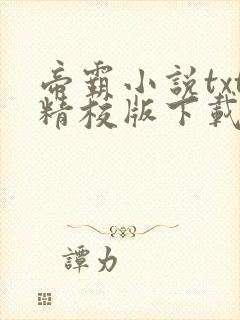 帝霸小説txt
精校版下載
譚力